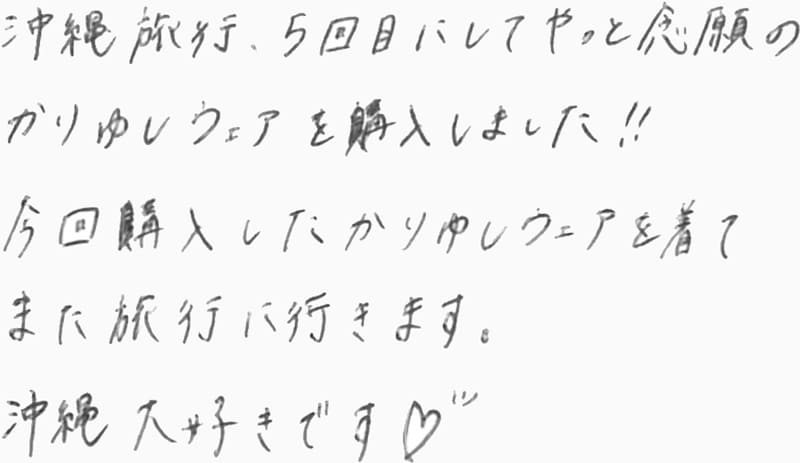 沖縄旅行、5回目にしてやっと念願の
かりゆしウェアを購入しました!!
今回購入したかりゆしウェアを着て
また旅行に行きます。
沖縄大好きです♡